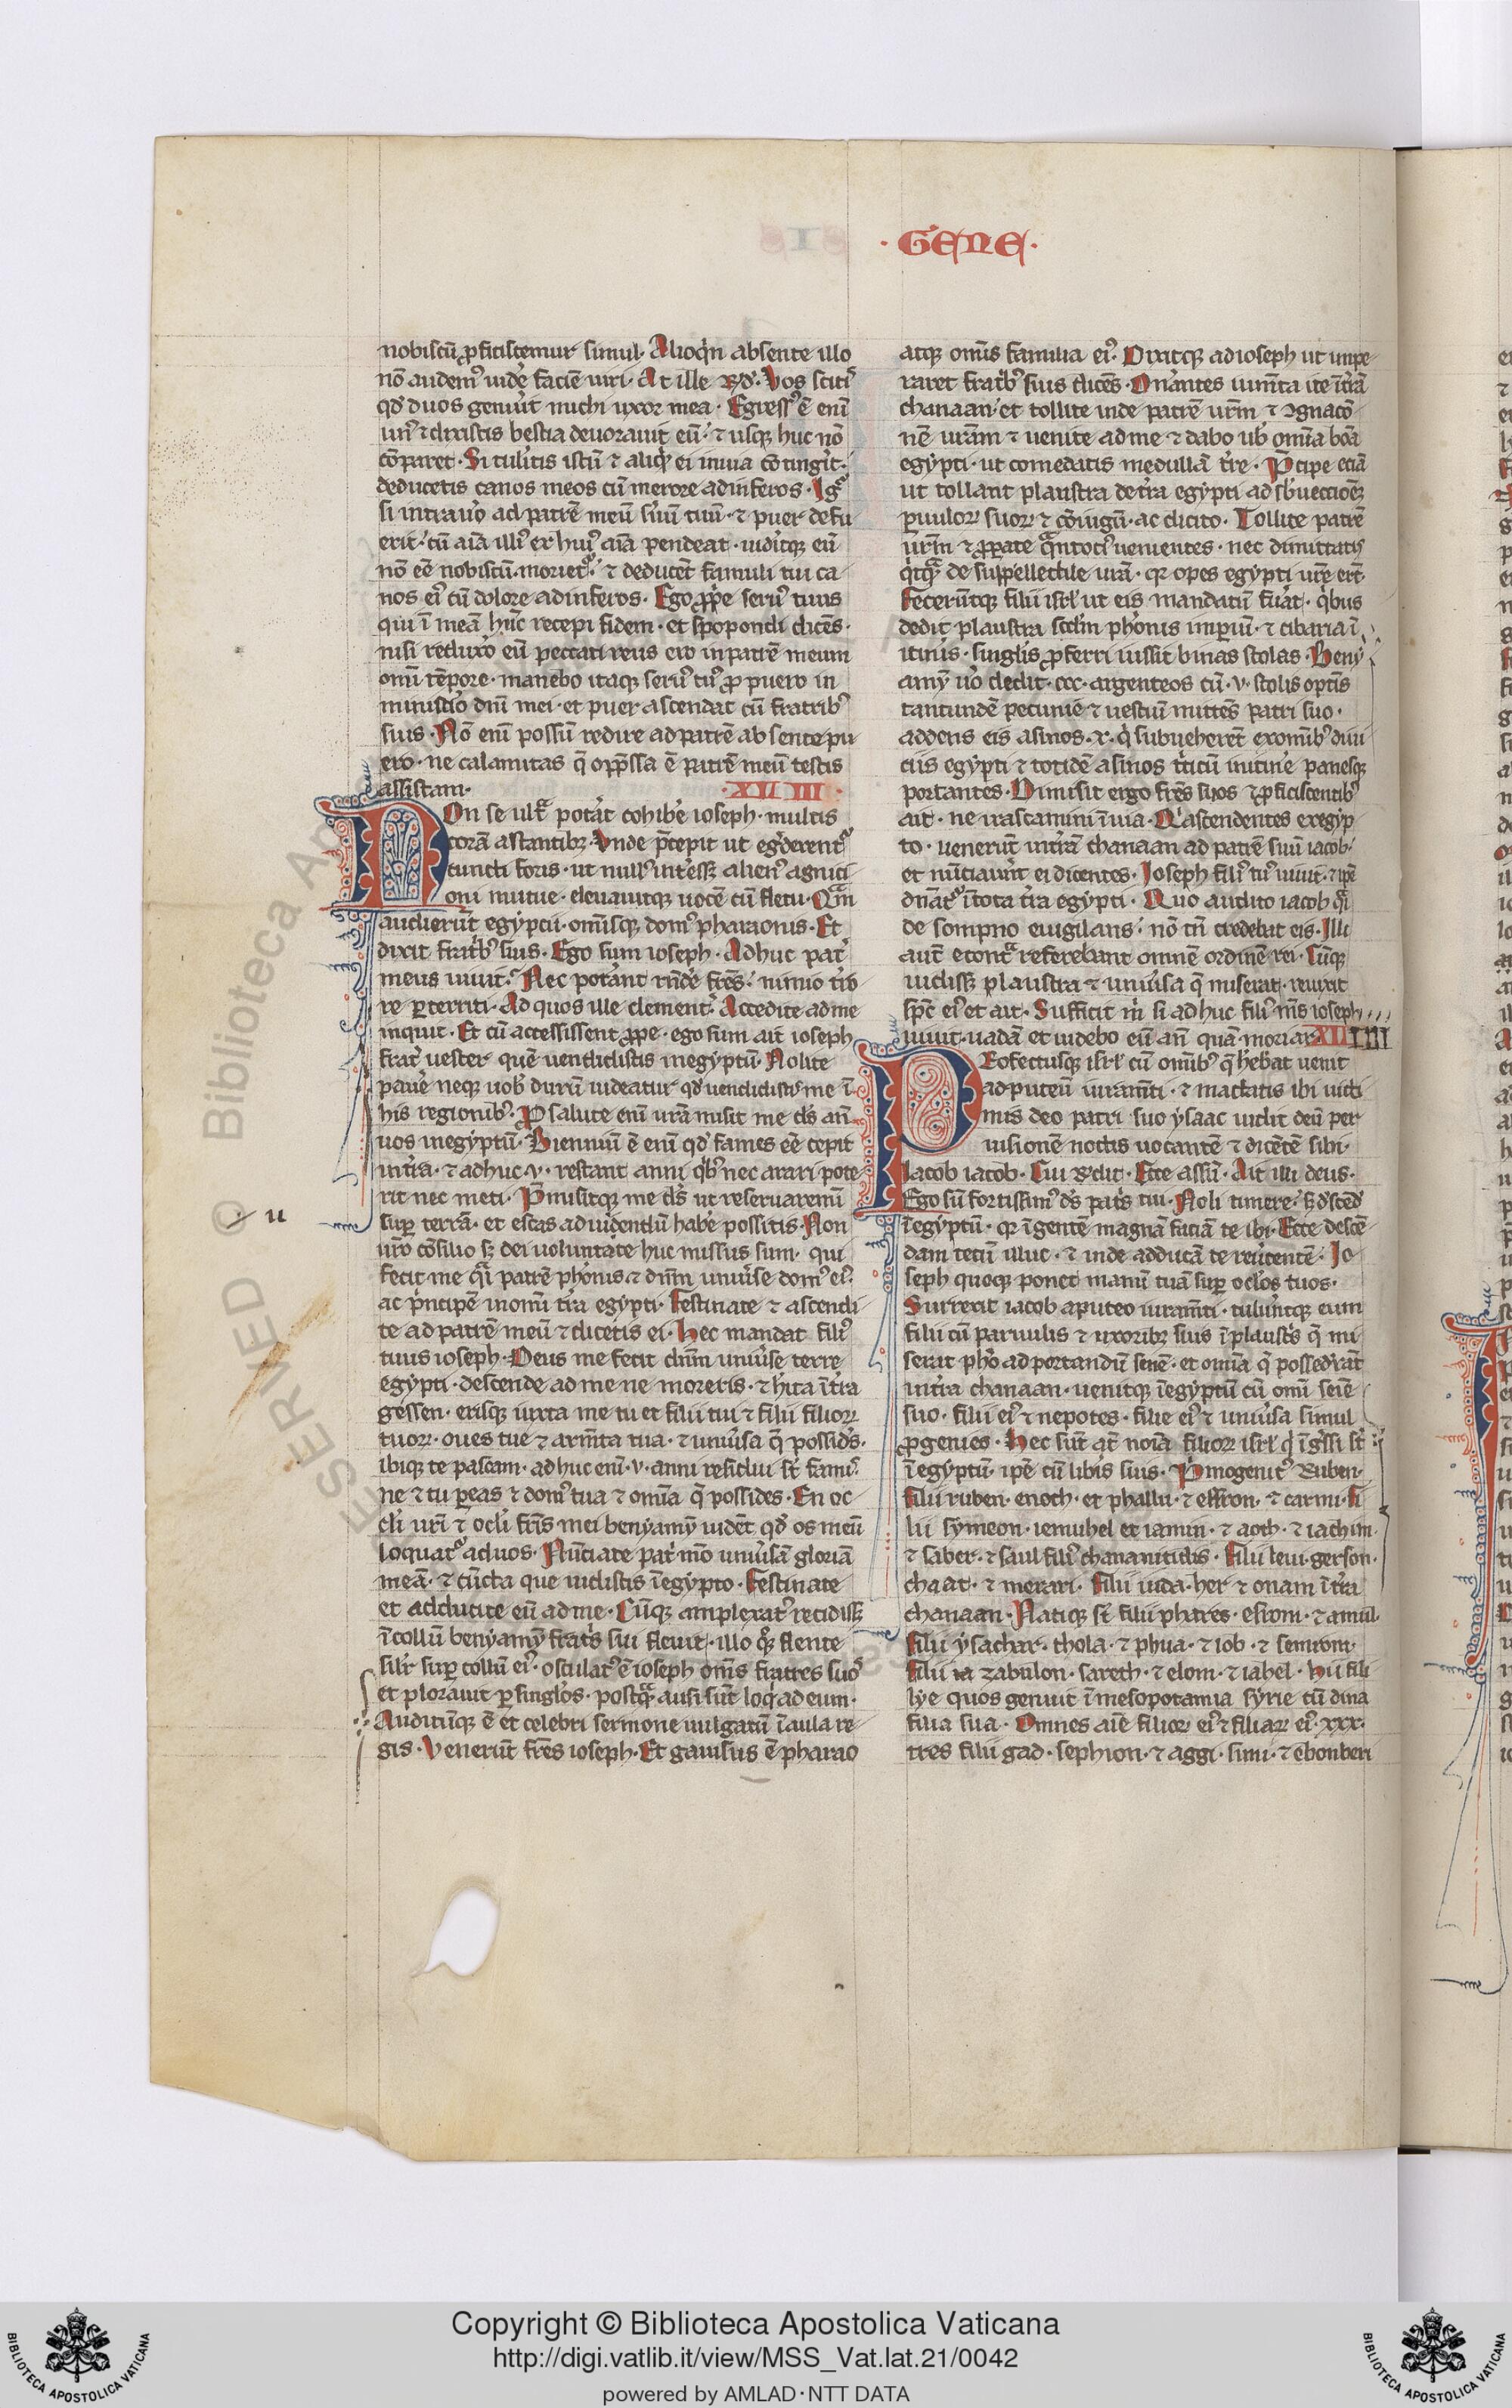 · GENE ·
nobiscū ꝓficiscemur simul· Alioq̇n absente illo
nō audemꝰ uidē faciē uiri· At ille Rꝰd· Vos scitis
qd̕ duos genuit michi uxor mea· Egressꝰ ē enī
unꝰ ⁊ dixistis bestia deuorauit eū· ⁊ usq; huc nō
cōparet· Si tulitis istū ⁊ aliqͥd ei in uia cōtingit·
deducetis canos meos cū merore ad inferos· Igͬ
si intrauo ad patrē meū suū tuū· ⁊ puer defu
erit· cū aīa illiꝰ ex huiꝰ aīa pendeat· uidītq; eū
nō eē nobiscū morietͬ· ⁊ deducēt famuli tui ca
nos eiꝰ cū dolore ad inferos· Ego ꝓpͥe seruꝰ tuus
qui ī meā hūc recepi fidem· et spopondi dicēs·
nisi reduxo eū peccati reus ero in patrē meum
omī tēpore· manebo itaq; seruꝰ tuꝰ ꝓ puero in
ministio dnī mei· et puer ascendat cū fratribꝰ
suis· Nō enī possū redire ad patrē absente pu
ero· ne calamitas q̄ opp̄ssa ē patrē meū testis
assistam·
Non se ultͣ potat cohibē ioseph· multis
corā astantibꝫ· Vnde p̄cepit ut egͤderentͬ
cuncti foris· ut nullꝰ intess; alienꝰ agniti
oni mutue· eleuauitq; uocē cū fletu· Qͣm
audierūt egyptii· omīsq; domꝰ pharaonis· Et
dixit fratbꝰ suis· Ego sum ioseph· Adhuc patͥ
meus uiuit· Nec potant rn̄dē frēs· nimio tͥro
re ꝑterriti· Ad quos ille clementͥ· Accedite ad me
inquit· Et cū accessissent ꝓpe· ego sum ait ioseph
fratͥ uester quē uendidistis in egyptū· Nolite
pauē neq; uob̄ durū uideatur qd̕ uendidistis me ī
his regionibꝰ· P̄ salute enī urā misit me ds̄ an̄
uos in egyptū· Bienniū ē enī qd̕ fames eē cepit
in tͥra· ⁊ adhuc ·v· restant anni qͥbꝰ nec arari pote
rit nec meti· P̄misitq; me ds̄ ut reseruaremī
suꝑ terrā· et escas ad uidendū habē possitis· Non
uro cōsilio sꝫ dei uoluntate huc missus sum· qui
fecit me qͣi patrē phōnis ⁊ dnm̄ uniuse domꝰ eiꝰ·
ac pͥncipē in omī tͥra egypti· Festinate ⁊ ascendi
te ad patrē meū ⁊ dicetis ei· Hec mandat filiꝰ
tuus ioseph· Deus me fecit dnm̄ uniuse terre
egypti· descende ad me ne moreris· ⁊ hita ī tͥra
gessen· erisq; iuxta me tu et filii tui ⁊ filii filioꝝ
tuoꝝ· oues tue ⁊ armta tua· ⁊ uniusa q̄ possides·
ibiq; te pascam· adhuc enī ·v· anni residui sūt famis·
ne ⁊ tu pereas ⁊ domꝰ tua ⁊ omīa q̄ possides· En oc
cl̄i urī ⁊ ocl̄i frīs mei benyamȳ uidēt qd̕ os meū
loquatͬ ad uos· Nūciate patͥ mō uniusā gloriā
meā· ⁊ cūcta que uidistis ī egypto· Festinate
et adducite eū ad me· Cūq; amplexatꝰ recidiss;
ī collū benyamȳ fratͥs sui fleuit· illo qͦq; flente
silͥr suꝑ collū eiꝰ· osculatꝰ ē ioseph omīs fratres suos
et plorauit ꝑ singlōs· postqͣ ausi sūt loqͥ ad eum·
Auditūq; ē et celebri sermone uulgatū ī aula re
gis· Venerūt frēs ioseph· Et gauisus ē pharao
atq; omīs familia eiꝰ· Dixitq; ad ioseph ut impe
raret fratbꝰ suis dicēs· Onantes iumta ite ī tͥrā
chanaan· et tollite inde patrē urm̄ ⁊ ꝯgnacō
nē urām ⁊ uenite ad me ⁊ dabo uob̄ omīa bōa
egypti· ut comedatis medullā tͥre· P̄cipe eciā
ut tollant plaustra de tͥra egypti ad sb̄uectioēꝫ
puuloꝝ suoꝝ ⁊ cōiugū· ac dicito· Tollite patrē
urm̄ ⁊ ꝓperate qͣntociꝰ uenientes· nec dimittatis
qͥcqͣ de suppellectile urā· qꝛ opes egypti urē erūt·
Fecerūtq; filii isrl̄ ut eis mandatū fuat· qͥbus
dedit plaustra scdm̄ phōnis imperiū· ⁊ cibaria ī
itinis· singlīs ꝓferri iussit binas stolas· Beny
amȳ uo dedit ·ccc· argenteos cū ·v· stolis optīs
tantundē pecunie ⁊ uestiū mittēs patri suo·
addens eis asinos ·x· qͥ subueherēt ex omībꝰ diui
ciis egypti ⁊ totidē asinos tͥticū in itine panesq;
portantes· Dimisit ergo frēs suos ⁊ ꝓficiscentibꝰ
ait· ne irascamini ī uia· Qͥ ascendentes ex egyp
to· uenerūt in tͥrā chanaan ad patrē suū iacob·
et nūciauūt ei dicentes· Ioseph filiꝰ tuꝰ uiuit· ⁊ ipē
dn̄atͬ ī tota tͥra egypti· Quo audito iacob qͣi
de sompno euigilans· nō tn̄ credebat eis· Illi
aut̄ econtͣ referebant omnē ordinē rei· Cūq;
uidiss; plaustra ⁊ uniusa q̄ miserat· reuixit
spc̄ eiꝰ et ait· Sufficit m̄ si adhuc filiꝰ ms̄ ioseph
uiuit· uadā et uidebo eū an̄ quā moriar· XLIIII
Profectusq; isrl̄ cū omībꝰ q̄ hēbat uenit
ad puteū iuramti· ⁊ mactatis ibi uicti
mis deo patri suo ysaac uidit deū per
uisionē noctis uocantē ⁊ dicētē sibi·
Iacob iacob· Cui rn̄dit· Ecce assū· Ait illi deus·
Ego sū fortissimꝰ ds̄ patͥs tui· Noli timere· sꝫ dͤscēd
ī egyptū· qꝛ ī gentē magnā faciā te ibi· Ecce descē
dam tecū illuc· ⁊ inde adducā te reutentē· Io
seph quoq; ponet manū tuā suꝑ oclos tuos·
Surrexit iacob a puteo iuramti· tulūtq; eum
filii cū paruulis ⁊ uxoribꝫ suis ī plaustͥs q̄ mi
serat pho ad portandū senē· et omīa q̄ possedat
in tͥra chanaan· uenitq; ī egyptū cū omī seīe
suo· filii eiꝰ ⁊ nepotes· filie eiꝰ ⁊ uniusa simul
ꝓgenies· Hec sūt at̄ noīa filioꝝ isrl̄ qͥ īgͤssi sūt
ī egyptū· ipē cū libīs suis· P̄mogenitꝰ Ruben·
Filii ruben· enoch· et phallu· ⁊ effron· ⁊ carmi· Fi
lii symeon· iemuhel et iamin· ⁊ aoth· ⁊ iachim·
⁊ saber· ⁊ saul filiꝰ chananitidis· Filii leui· gerson·
chaat· ⁊ merari· Filii iuda· her ⁊ onam ī tͥra
chanaan· Natiq; sūt filii phares· esrom· ⁊ amul·
Filii ysachar· thola· ⁊ phua· ⁊ iob· ⁊ semrom·
Filii zabulon· sareth· ⁊ elom· ⁊ iahel· Hii fili
lye quos genuit ī mesopotamia syrie cū dina
filia sua· Omnes aīe filioꝝ eiꝰ ⁊ filiaꝝ eiꝰ ·xxx·
tres filii gad· sephion· ⁊ aggi· suni· ⁊ ebonberi
u
RESERVED © Biblioteca Ap
Copyright © Biblioteca Apostolica Vaticana
http://digi.vatlib.it/view/MSS_Vat.lat.21/0042
powered by AMLAD·NTT DATA
BIBLIOTECA APOSTOLICA VATICANA
BIBLIOTECA APOSTOLICA VATICANA